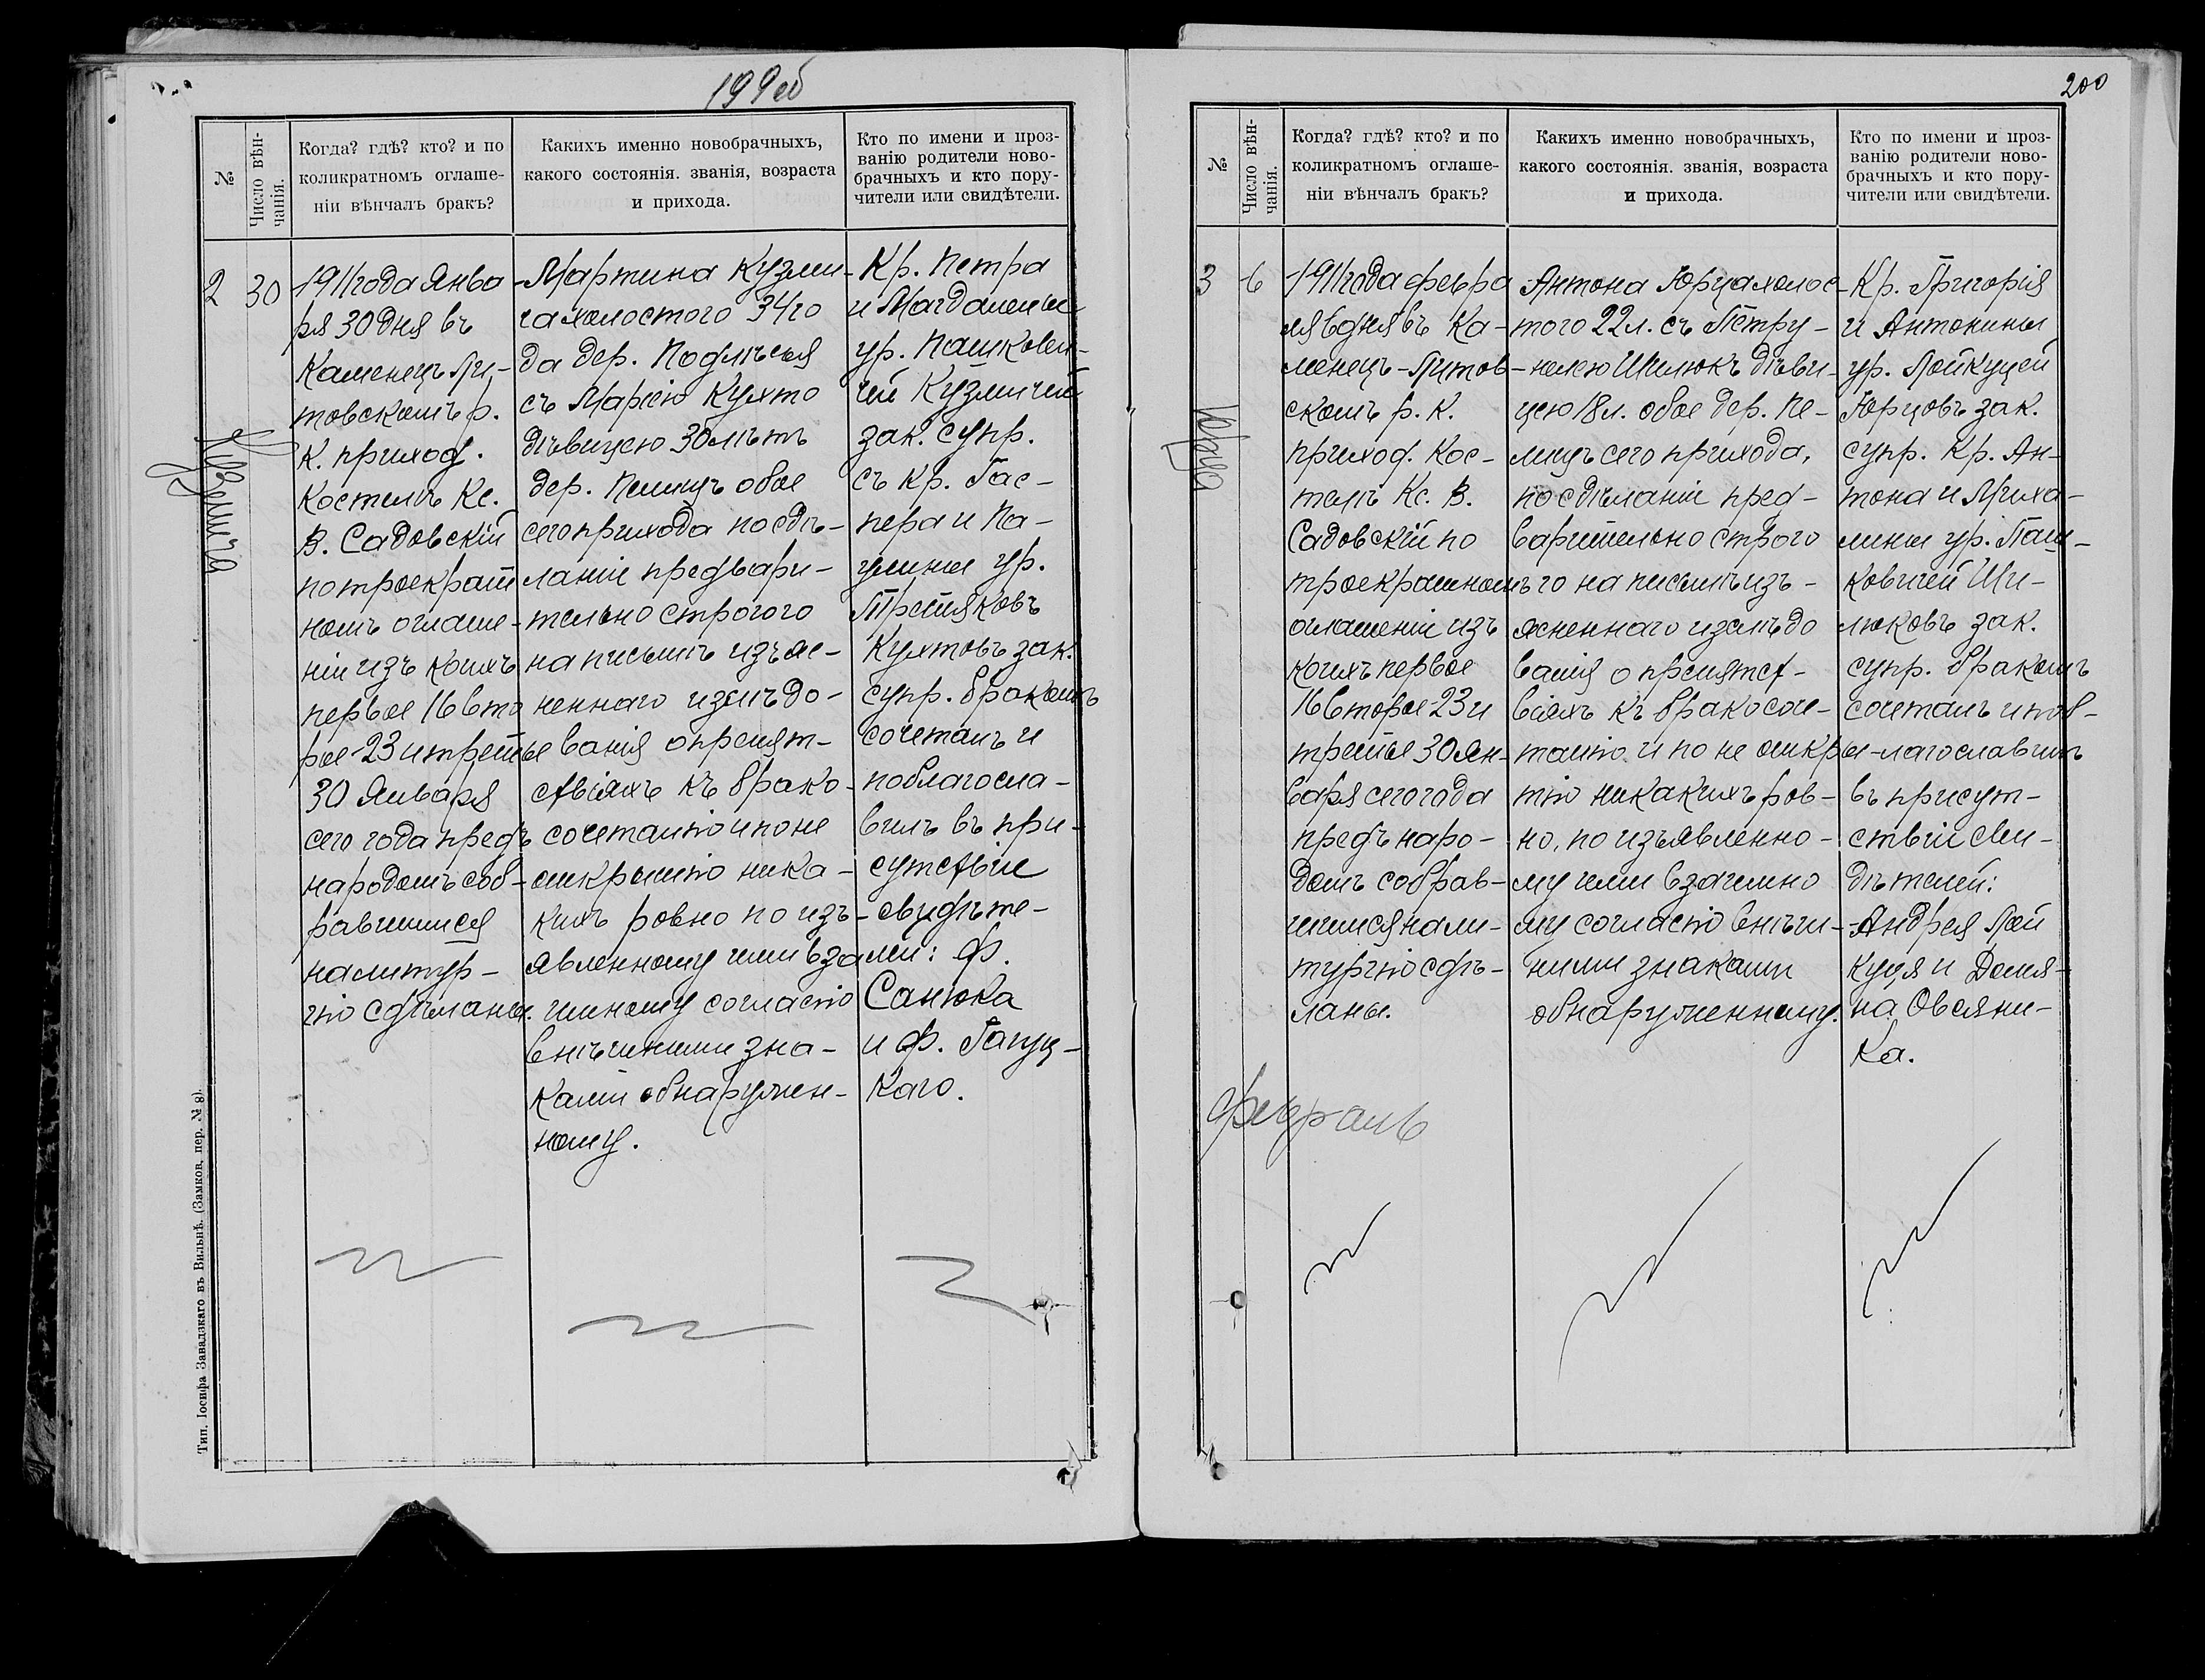 199об
№
Число вѣн-
чанія.
Когда? гдѣ? кто? и по
коликратномъ оглаше-
ніи вѣнчалъ бракъ?
Какихъ именно новобрачныхъ,
какого состоянія. званія, возраста
и прихода.
Кто по имени и проз-
ванію родители ново-
брачныхъ и кто пору-
чители или свидѣтели.
2
30
Кузмича
1911 года Янва
ря 30 дня въ
Каменецъ Ли-
товскомъ р.
К. приход.
Костелѣ Кс.
В. Садовскій
по троекрат
номъ оглаше-
ніи изъ коихъ
первое 16 вто
рое 23 и третье
30 Января
сего года предъ
народомъ соб-
равшимся
на литур-
гію сдѣланы.
Мартина Кузми-
ча холостого 34 го
да дер. Подлѣсья
съ Маріею Кухто
дѣвицею 30 лѣтъ
дер. Пелищъ обое
сего прихода по сдѣ-
ланіи предвари-
тельно строгого
на письмѣ изъяс-
неннаго изслѣдо-
ванія о препят-
ствіяхъ къ брако-
сочетанію и по не
открытію ника-
кихъ ровно по изъ-
явленному ими вза
имному согласію
внѣшними зна-
ками обнаружен-
ному.
Кр. Петра
и Магдалены
ур. Пашкеви-
чей Кузмичей
зак. супр.
съ Кр. Гас-
пера и Па-
улины ур.
Третяковъ
Кухтовъ зак.
супр. бракомъ
сочеталъ и
поблагосла-
вилъ въ при-
сутствіи
свидѣте-
лей: Ф.
Санюка
и Ф. Гапуц-
каго.
Тип. Іосифа Завадзкаго въ Вильнѣ. (Замков. пер. № 8).
200
№
Число вѣн-
чанія.
Когда? гдѣ? кто? и по
коликратномъ оглаше-
ніи вѣнчалъ бракъ?
Какихъ именно новобрачныхъ,
какого состоянія. званія, возраста
и прихода.
Кто по имени и проз-
ванію родители ново-
брачныхъ и кто пору-
чители или свидѣтели.
3
6
Юрца
1911 года февра
ля 6 дня въ Ка-
менецъ-Литов-
скомъ р. К.
приход. Кос-
телѣ Кс. В.
Садовскій по
троекратномъ
оглашеніи изъ
коихъ первое
16 второе 23 и
третье 30 Ян-
варя сего года
предъ наро-
домъ собрав-
шимся на ли-
тургію сдѣ-
ланы.
Антона Юрца холос-
того 22 л. съ Петру-
нелею Шилюкъ дѣви-
цею 18 л. обое дер. Пе-
лищъ сего прихода,
по сдѣланіи пред-
варительно строго
го на письмѣ изъ-
ясненнаго изслѣдо
ванія о препятст-
віяхъ къ бракосоче-
танію и по не откры-
тію никакихъ ров-
но, по изъявленно-
му ими взаимно
му согласію внѣш-
ними знаками
обнаруженному.
Кр. Григорія
и Антонины
ур. Лойкуцей
Юрцовъ зак.
супр. Кр. Ан-
тона и Миха-
лины ур. Паш-
ковичей Ши-
люковъ зак.
супр. бракомъ
сочеталъ и поб-
лагославилъ
въ присут-
ствіи сви-
дѣтелей:
Андрея Лой
куця и Демя-
на Овсяни-
ка.
февраль